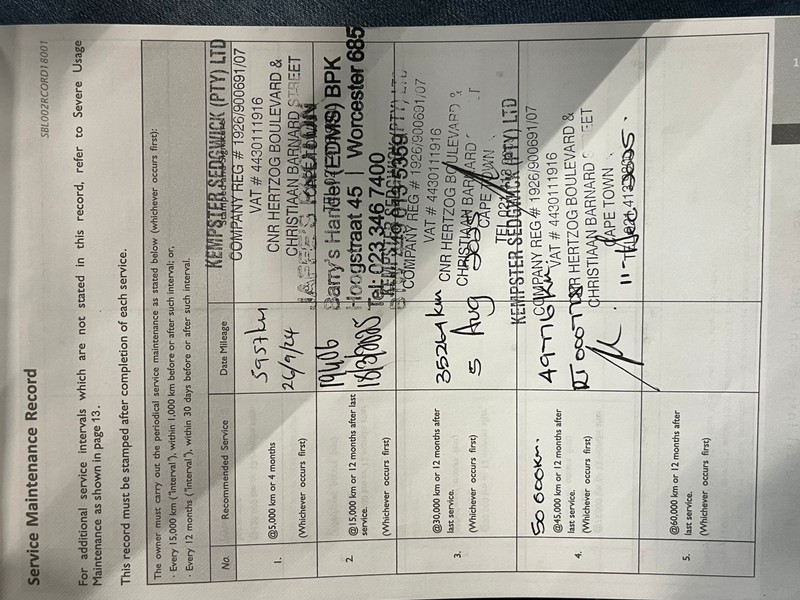 SBL002RCORD18001
Service Maintenance Record
For additional service intervals which are not stated in this record, refer to Severe Usage
Maintenance as shown in page 13.
This record must be stamped after completion of each service.
The owner must carry out the periodical service maintenance as stated below (whichever occurs first):
- Every 15,000 km ("Interval"), within 1,000 km before or after such interval; or,
- Every 12 months ("Interval"), within 30 days before or after such interval.
No. Recommended Service Date Mileage
1.
@5,000 km or 4 months
(Whichever occurs first)
5957km
26/9/24
KEMPSTER SEDGWICK (PTY) LTD
COMPANY REG # 1926/900691/07
VAT # 4430111916
CNR HERTZOG BOULEVARD &
CHRISTIAAN BARNARD STREET
2.
@15,000 km or 12 months after last
service.
(Whichever occurs first)
19406
18/3/2025
Barry's Handel (EDMS) BPK
Hoogstraat 45 | Worcester 685
Tel: 023 346 7400
3.
@30,000 km or 12 months after
last service.
(Whichever occurs first)
35264km
5 Aug 2025
COMPANY REG # 1926/900691/07
VAT # 4430111916
CNR HERTZOG BOULEVARD &
CHRISTIAAN BARNARD
CAPE TOWN
4.
50 000km.
@45,000 km or 12 months after
last service.
(Whichever occurs first)
49776km
KEMPSTER SEDGWICK (PTY) LTD
COMPANY REG # 1926/900691/07
VAT # 4430111916
CNR HERTZOG BOULEVARD &
CHRISTIAAN BARNARD STREET
CAPE TOWN
5.
@60,000 km or 12 months after
last service.
(Whichever occurs first)